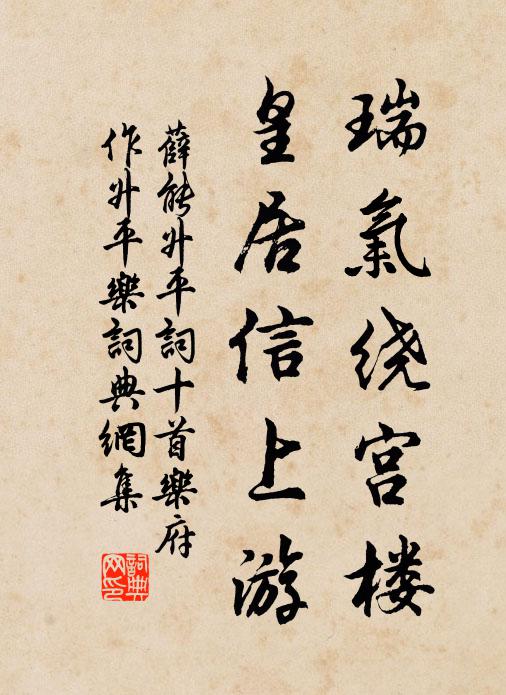 瑞氣绕宫楼
皇居信上游
薛能升平詞十首樂府
作升平樂詞典網集
詞典網印